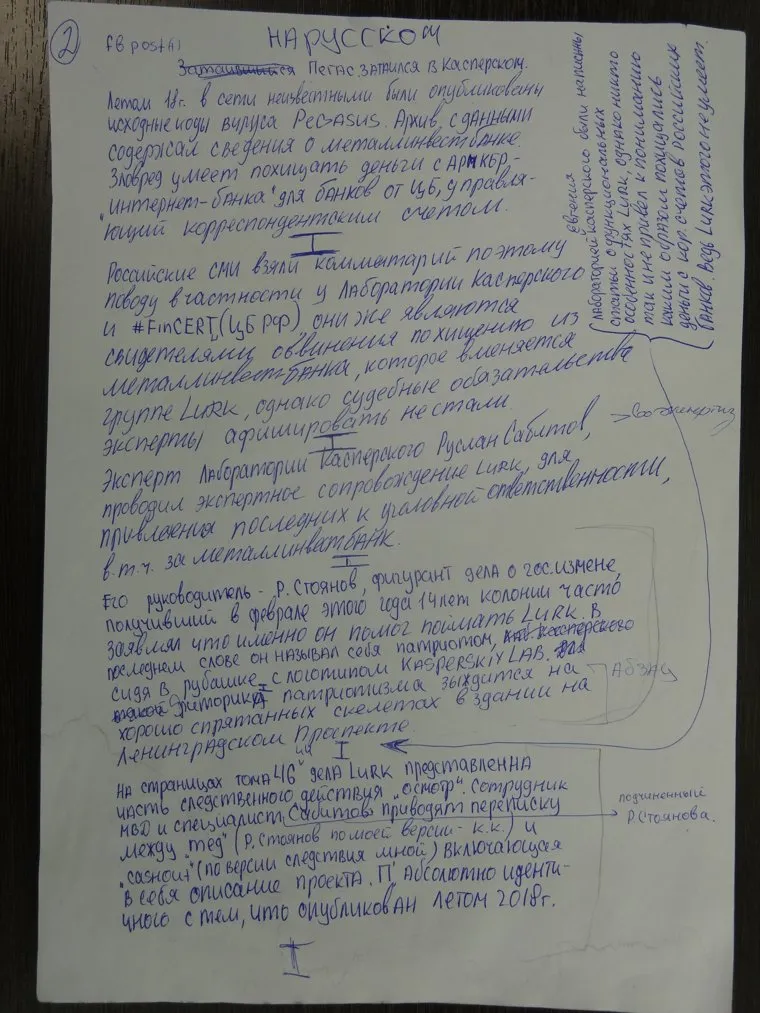 2
fb post(1)
НА РУССКОМ
Пегас затаился в Касперском.
Летом 18г. в сети неизвестными были опубликованы
исходные коды вируса PEGASUS. Архив с данными
содержал сведения о металлинвестбанке.
Зловред умеет похищать деньги с АРМ КБР,-
"интернет-банка" для банков от ЦБ, управля-
ющий корреспондентским счетом.
Российские СМИ взяли комментарий по этому
поводу в частности у Лаборатории Касперского
и #FinCERT (ЦБ РФ), они же являются
свидетелями обвинения по хищению из
металлинвестбанка, которое вменяется
группе LURK, однако судебные обязательства
эксперты афишировать не стали.
Эксперт Лаборатории Касперского Руслан Сабитов,
проводил экспертное сопровождение LURK, для
привлечения последних к уголовной ответственности,
в.т.ч. за металлинвестбанк.
Его руководитель - Р.Стоянов, фигурант дела о гос.измене,
получивший в феврале этого года 14 лет колонии часто
заявлял что именно он помог поймать LURK. В
последнем слове он называл себя патриотом,
сидя в рубашке с логотипом KASPERSKIY LAB.
риторика патриотизма зыждится на
хорошо спрятанных скелетах в здании на
Ленинградском Проспекте.
АБЗАЦ
Лабораторией Касперского были написанны
статьи о функциональных
особенностях LURK, однако никто
так и не привел к пониманию
каким образом похищались
деньги с кор. счетов Российских
банков. Ведь LURK этого не умеет.
На страницах тома 46 дела LURK представленна
часть следственного действия "осмотр". Сотрудник
МВД и специалист Сабитов приводят переписку
подчиненный
Р.Стоянова.
между "тед" (Р.Стоянов по моей версии - К.К.) и
"cashout" (по версии следствия мной) включающая
в себя описание проекта. П' Абсолютно иденти-
чного с тем, что опубликован летом 2018г.